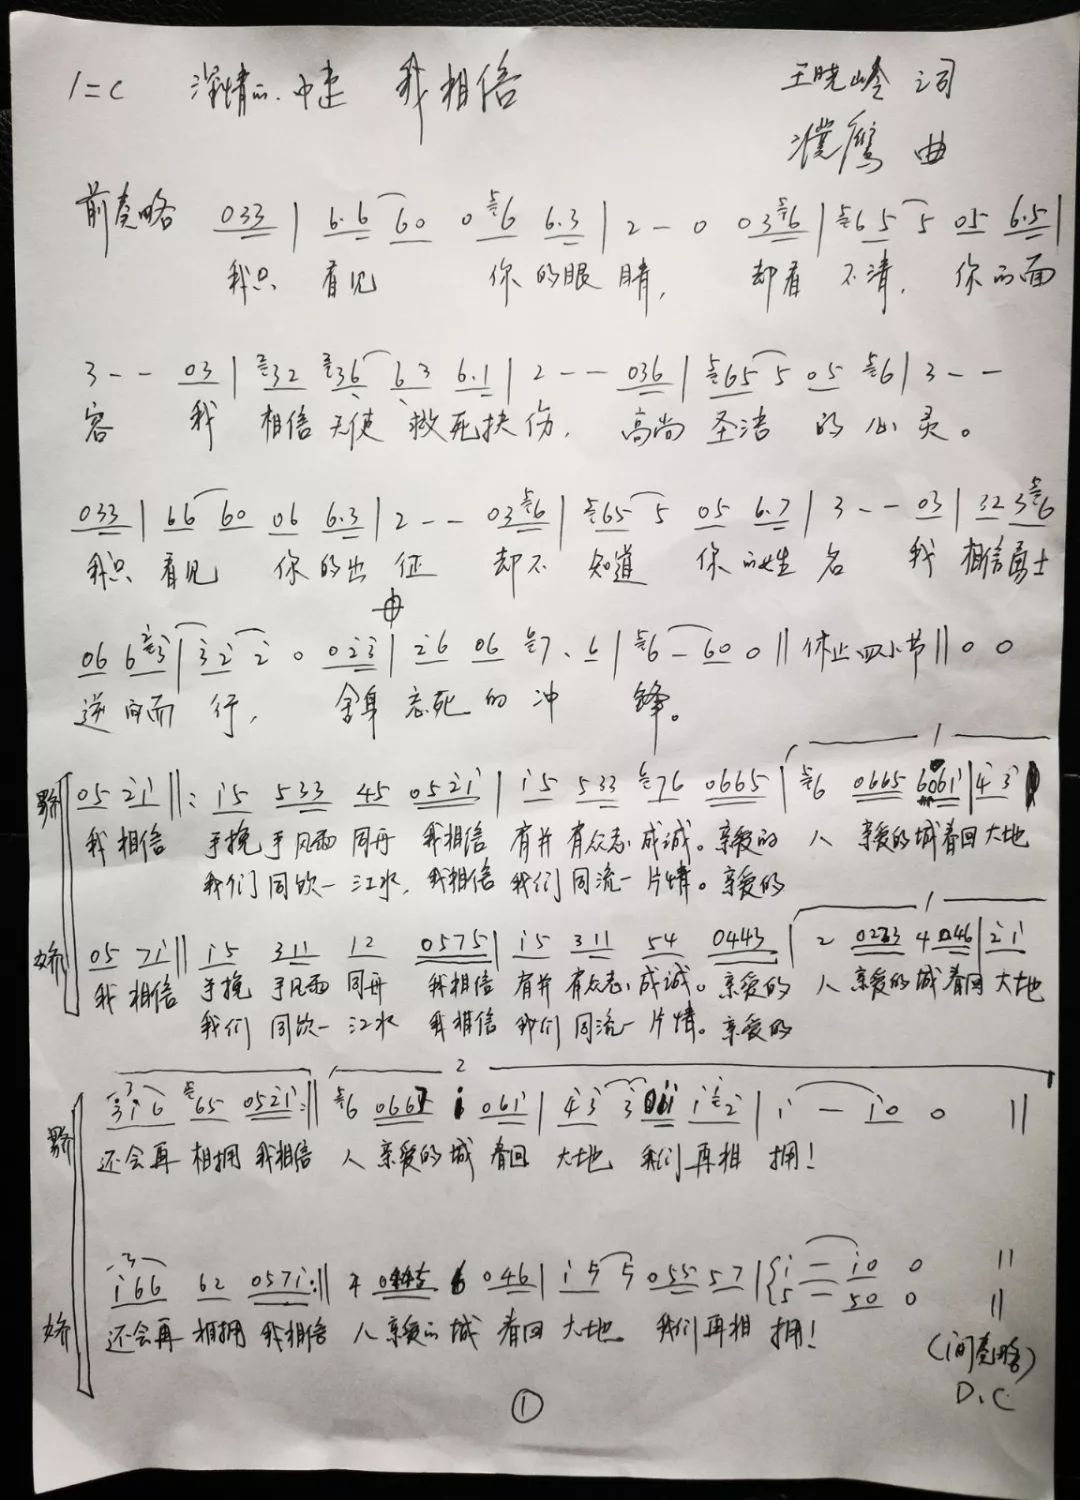 1=C 深情的.中速 我相信 王晓岭 词
濮鹰 曲
前奏略 033 | 6.6 60 0 6 6.3 | 2 - 0 036 | 65 5 05 6.5 |
我只 看见 你的眼 睛, 却看 不清, 你的面
3 - - 03 | 32 36 63 6.1 | 2 - - 036 | 65 5 05 6 | 3 - -
容 我 相信 天使 救死扶伤, 高尚 圣洁 的心灵。
033 | 66 60 06 6.3 | 2 - - 036 | 65 5 05 6.7 | 3 - - 03 | 32 36
我只 看见 你的出 征 却不 知道 你的姓 名 我 相信勇士
06 63 | 32 2 0 023 | 26 06 7.6 | 6 - 60 0 || 休止四小节 || 0 0
逆向而 行, 舍身 忘死的冲 锋。
05 21 ||: 15 533 45 0521 | 15 533 76 0665 | 6 0665 6061 | 43
我 相信 手挽 手风雨 同舟 我相信 有井 有众志 成诚。亲爱的 人 亲爱的城春回大地
我们 同饮一 江水, 我相信 我们 同流一 片情。亲爱的
05 71 || 15 311 12 0575 | 15 311 54 0443 | 2 0233 4046 | 21
我 相信 手挽 手风雨 同舟 我相信 有井 有众志 成诚。亲爱的 人 亲爱的城春回 大地
我们 同饮一 江水 我相信 我们 同流一 片情。亲爱的
316 65 0521 :|| 6 066 061 | 43 3 12 | 1 - 10 0 ||
还会再 相拥 我相信 人 亲爱的城 春回 大地 我们再相 拥!
166 62 0571 :|| 4 6 046 | 15 5 055 57 | 1 - 10 0 ||
5 - 50 0 ||
还会再 相拥 我相信 人 亲爱的城 春回 大地 我们再相 拥!
(间奏略)
D.C
①